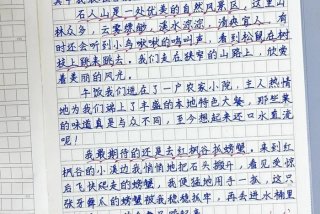 石人山是一处优美的自然风景区，这里山
林众多，云雾缭绕，溪水淙淙，清爽宜人，有
时还会听到小鸟啾啾的鸣叫声，看到松鼠在树
枝上跳来跳去。我们走在狭窄的山路上，欣赏
着美丽的风光。
午饭我们进在了一户农家小院，主人热情
地为我们端上了丰盛的本地特色大餐，那些菜
的味道真是与众不同，至今想起来还口水直流
呢！
我最期待的还是去红树谷抓螃蟹。来到红
树谷的小溪边我悄悄地把石头搬开，看见受惊
后飞快爬走的螃蟹，我便猛地用手一抓，这只
张牙舞爪的螃蟹被我稳稳抓牢，再丢进水桶里